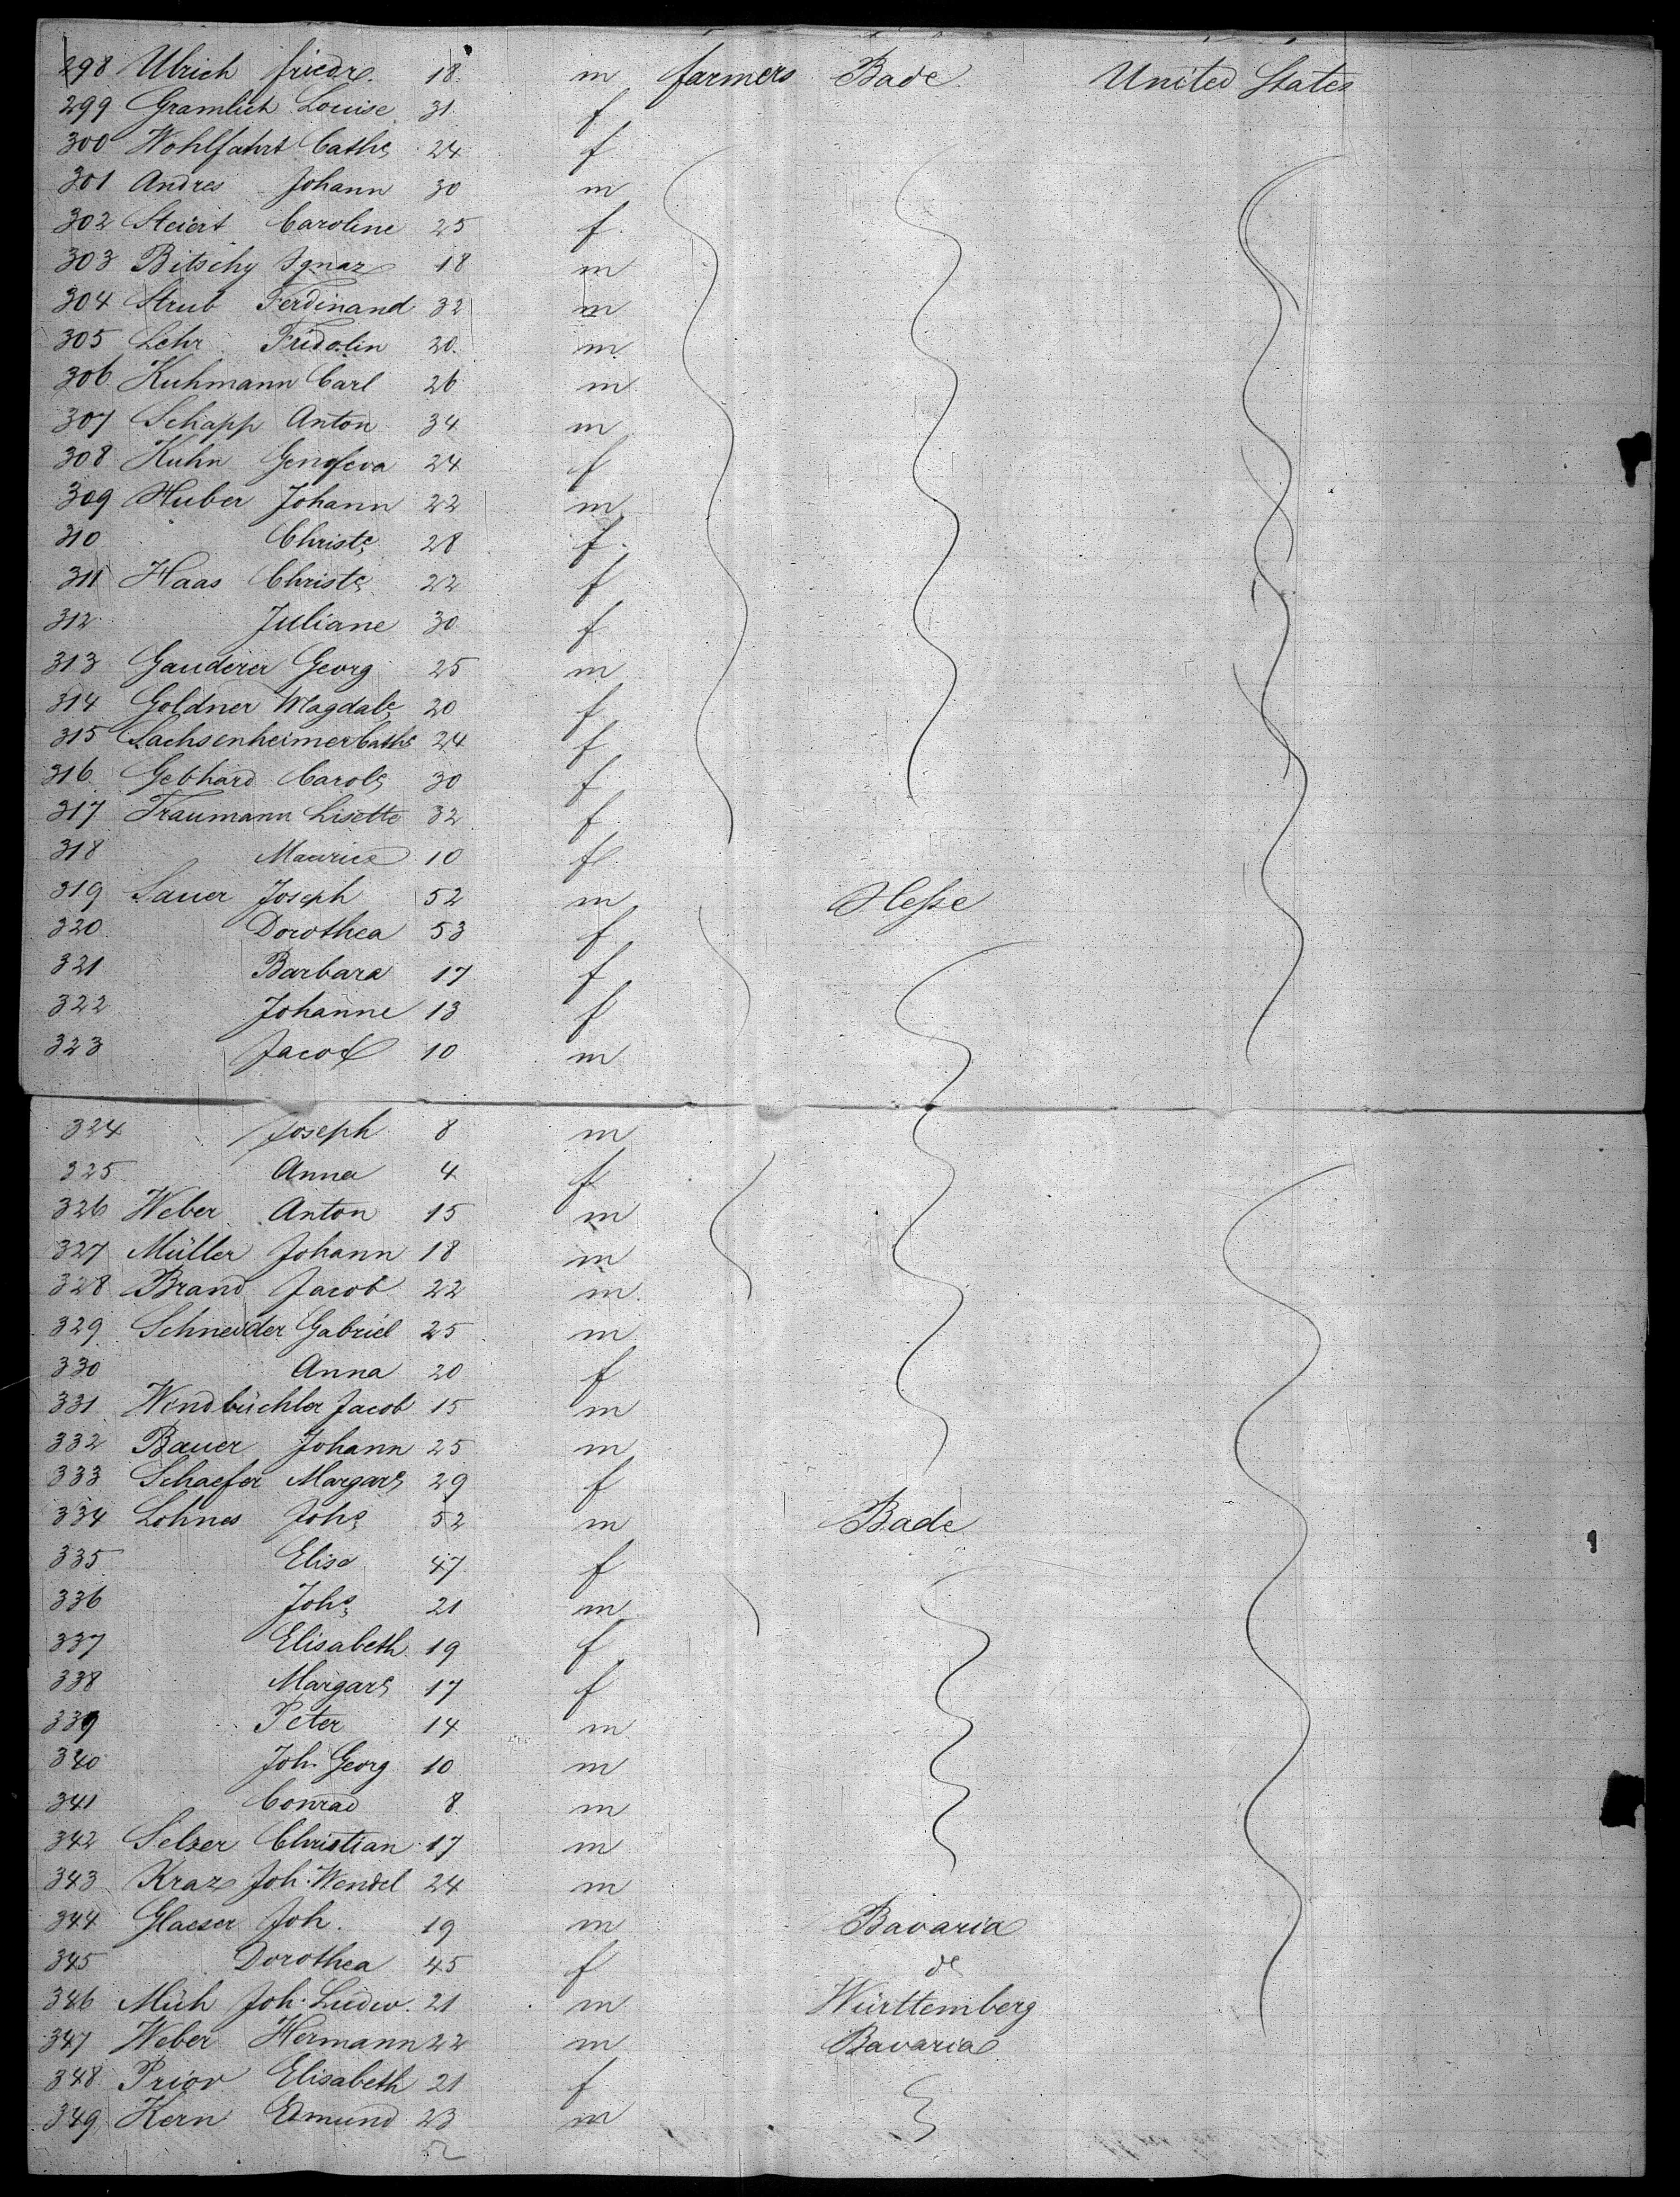 298 Ulrich friedr. 18 m farmers Bade United States
299 Gramlich Louise 31 f
300 Wohlfahrt Cathe 24 f
301 Andres Johann 30 m
302 Steiert Caroline 25 f
303 Bitschy Ignaz 18 m
304 Strub Ferdinand 32 m
305 Lehr Fridolin 20 m
306 Kuhmann Carl 26 m
307 Schapp Anton 34 m
308 Kuhn Genofeva 24 f
309 Huber Johann 22 m
310 Christe 28 f
311 Haas Christe 22 f
312 Juliane 30 f
313 Gauderer Georg 25 m
314 Goldner Magdale 20 f
315 Sachsenheimer Cathe 24 f
316 Gebhard Carole 30 f
317 Traumann Lisette 32 f
318 Maurice 10 f
319 Sauer Joseph 52 m Hesse
320 Dorothea 53 f
321 Barbara 17 f
322 Johanne 13 f
323 Jacob 10 m
324 Joseph 8 m
325 Anna 4 f
326 Weber Anton 15 m
327 Müller Johann 18 m
328 Brand Jacob 22 m
329 Schneider Gabriel 25 m
330 Anna 20 f
331 Windbüchler Jacob 15 m
332 Bauer Johann 25 m
333 Schaefer Margare 29 f
334 Lohnes Johs 52 m Bade
335 Elisa 47 f
336 Johs 21 m
337 Elisabeth 19 f
338 Margare 17 f
339 Peter 14 m
340 Joh. Georg 10 m
341 Conrad 8 m
342 Selzer Christian 17 m
343 Kraz Joh. Wendel 24 m
344 Glaeser Joh. 19 m Bavaria
345 Dorothea 45 f do
346 Müh Joh. Ludw. 21 m Württemberg
347 Weber Hermann 22 m Bavaria
348 Prior Elisabeth 21 f
349 Kern Edmund 23 m